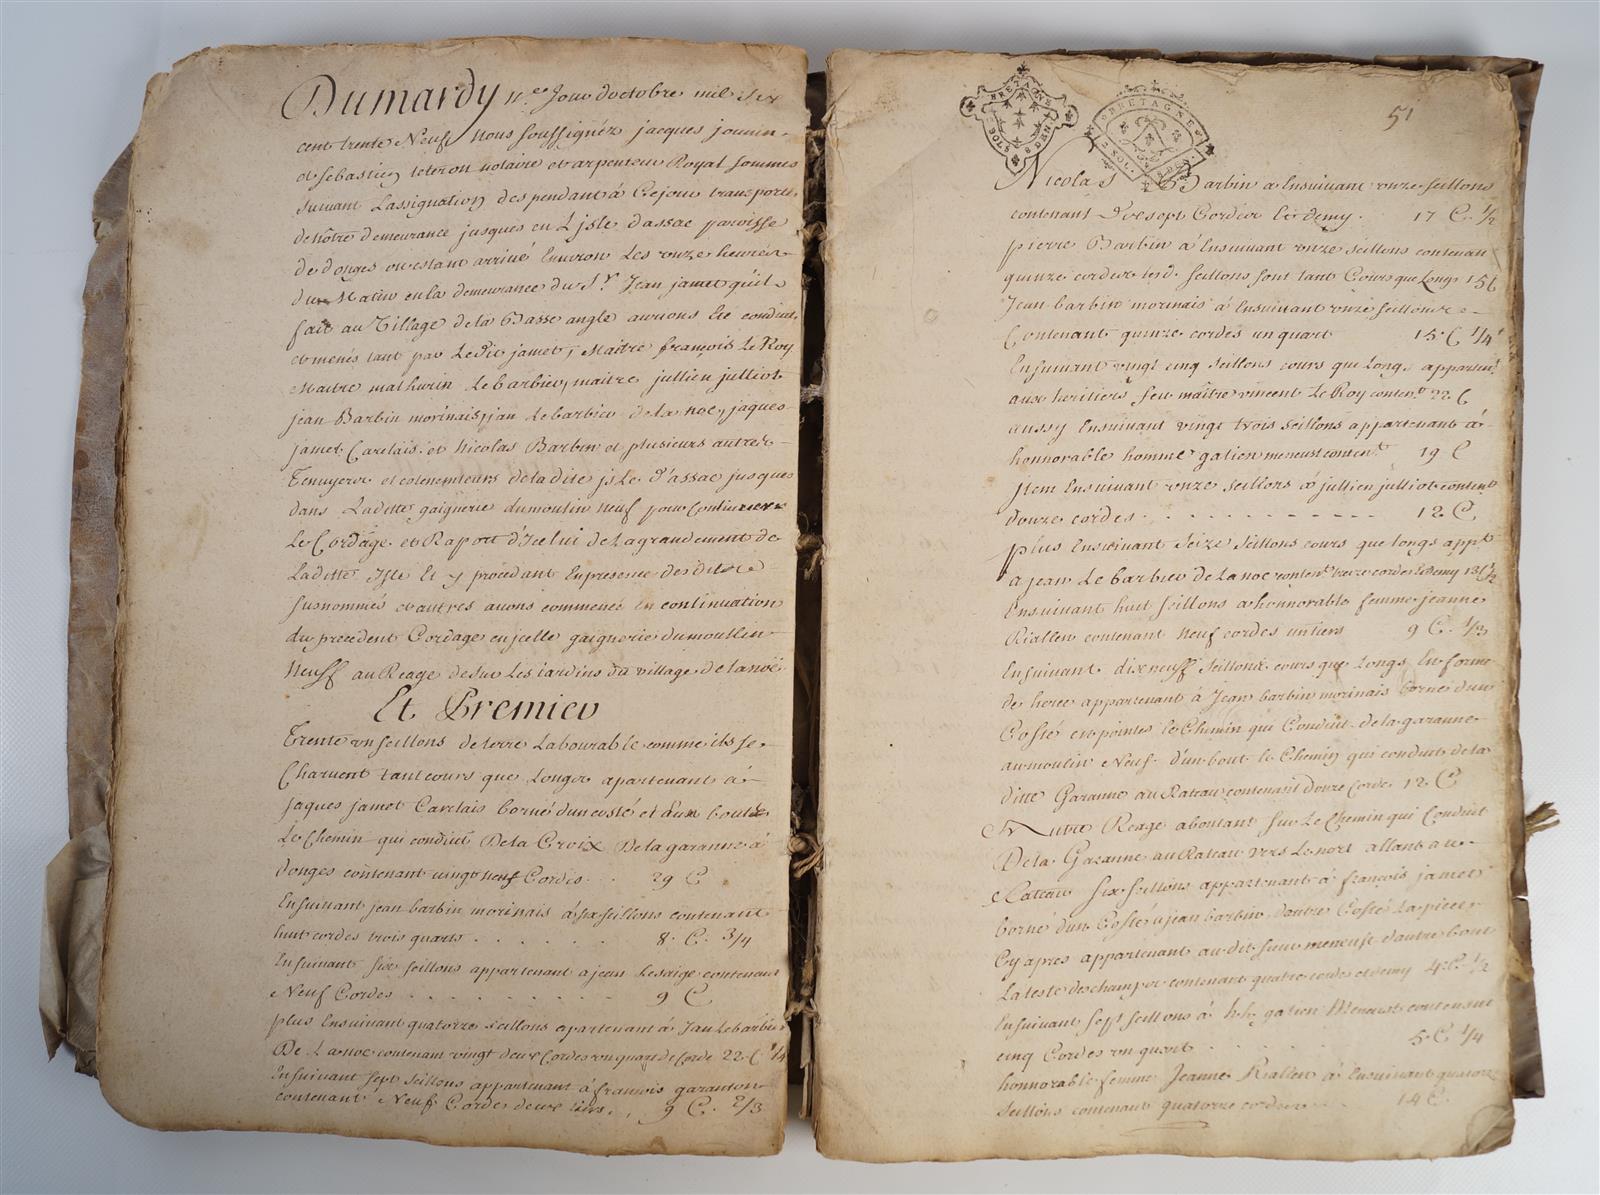 Dumardy 11.e Jour doctobre mil six
cent trente Neuf Nous soussignéz jacques jouin-
et sebastien leteron notaire et arpenteur Royal sommes
suivant Lassignation des pendant à cejour transporté
de nôtre demeurance jusques en L'jsle dassac paroisse
de donges ou estant arrivé Environ Les onze heures
du Matin en la demeurance du S.r Jean jamet quil
fait au Village de la Basse angle aurions Eté conduit
et menés tant par Ledit jamet, Maitre françois Le Roy
Maitre mathurin Le barbier, maitre jullien julliot
jean Barbin morinais, jan Le barbier de la noe, jaques
jamet Carelais et Nicolas Barbin et plusieurs autres
Tenuyers et detenteurs de la dite jsle d'assac jusques
dans Laditte gaignerie dumoulin neuf pour Continuer
Le Cordage et Raport d'Icelui de Lagrandement de
Laditte Isle Et y procedant Enpresence desdits
susnommés et autres avons commencé en continuation
du precedent Cordage en jcelle gaignerie dumoulin
Neuff au Reage de sur Les jardins du village de lanoë
Et Premier
Trente un seillons de terre Labourable comme ils se
Charuent tant cours que Longs apartenant à
jaques jamet Carelais borné dun costé et d'un bout
Le Chemin qui conduit De la Croix De la garanne à
donges contenant vingt neuf Cordes . . 29 C
Ensuivant jean barbin morinais à six seillons contenant
huit cordes trois quarts . . . . . . 8. C. 3/4
Ensuivant six seillons appartenant a jean Lesaige contenant
Neuf Cordes . . . . . . . . . 9 C
plus Ensuivant quatorze seillons apartenant à Jan Le barbier
De La noe contenant vingt deux Cordes un quart de Corde 22. C 1/4
Ensuivant sept seillons appartenant à francois garanton
contenant Neuf Cordes deux tiers . , 9 C. 2/3
BRETAGNE
BRETAGNE
51
Nicolas Barbin a Ensuivant onze seillons
contenant Dixsept Cordes Et demy . 17 C. 1/2
pierre Barbin à Ensuivant onze seillons contenan
quinze cordes lesd. seillons sont tant Cours que Longs 15 C
Jean barbin morinais à Ensuivant onze seillons
Contenant quinze cordes un quart 15. C 1/4
Ensuivant vingt cinq seillons cours que Longs appartent
aux heritiers feu maître vincent Le Roy conten.t 22 C
aussy Ensuivant vingt trois seillons appartenant à
honnorable homme gatien meneust conten.t 19 C
Jtem Ensuivant onze seillons à jullien julliot conten.t
douze cordes . . . . . . . . 12 C
plus Ensuivant seize seillons cours que longs app.t
a jean Le barbier de La noe conten.t treize cordes Et demy 13 C 1/2
Ensuivant huit seillons a honnorable femme jeanne
Riallen contenant neuf cordes un tiers 9 C. 1/3
Ensuivant dix neuff seillons cours que Longs En forme
de herce appartenant à Jean barbin morinais borné dun
Costé et pointes le Chemin qui Conduit de la garanne
au moulin Neuf d'un bout le Chemin qui conduit de la
ditte Garanne au Rateau contenant douze Corde 12 C
Autre Reage aboutant sur Le Chemin qui Conduit
De la Garanne au Rateau vers Le nort allant au
Rateau six seillons appartenant à françois jamet
borné d'un Costé à jean barbin d'autre Costé La piece
Cy apres appartenant au dit sieur meneust d'autre bout
La teste des champs contenant quatre cordes et demy 4. C. 1/2
Ensuivant sept seillons à h.h. gatien Meneust contenant
cinq Cordes un quart . . . . . . 5. C 1/4
honnorable femme Jeanne Riallen à Ensuivant quatorze
seillons contenant quatorze cordes . . . 14 C.